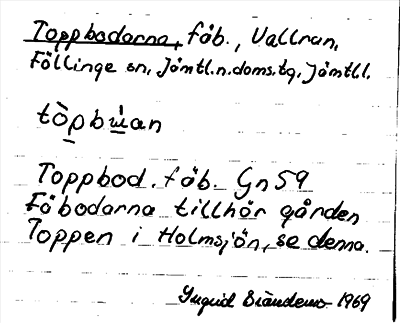 Toppbodarna, fäb., Vallrun,
Föllinge sn, Jämtl.n.doms.tg, Jämtl l.
tòpbùan
Toppbod. fäb. Gn 59
Fäbodarna tillhör gården
Toppen i Holmsjön, se denna.
Ingrid 1969